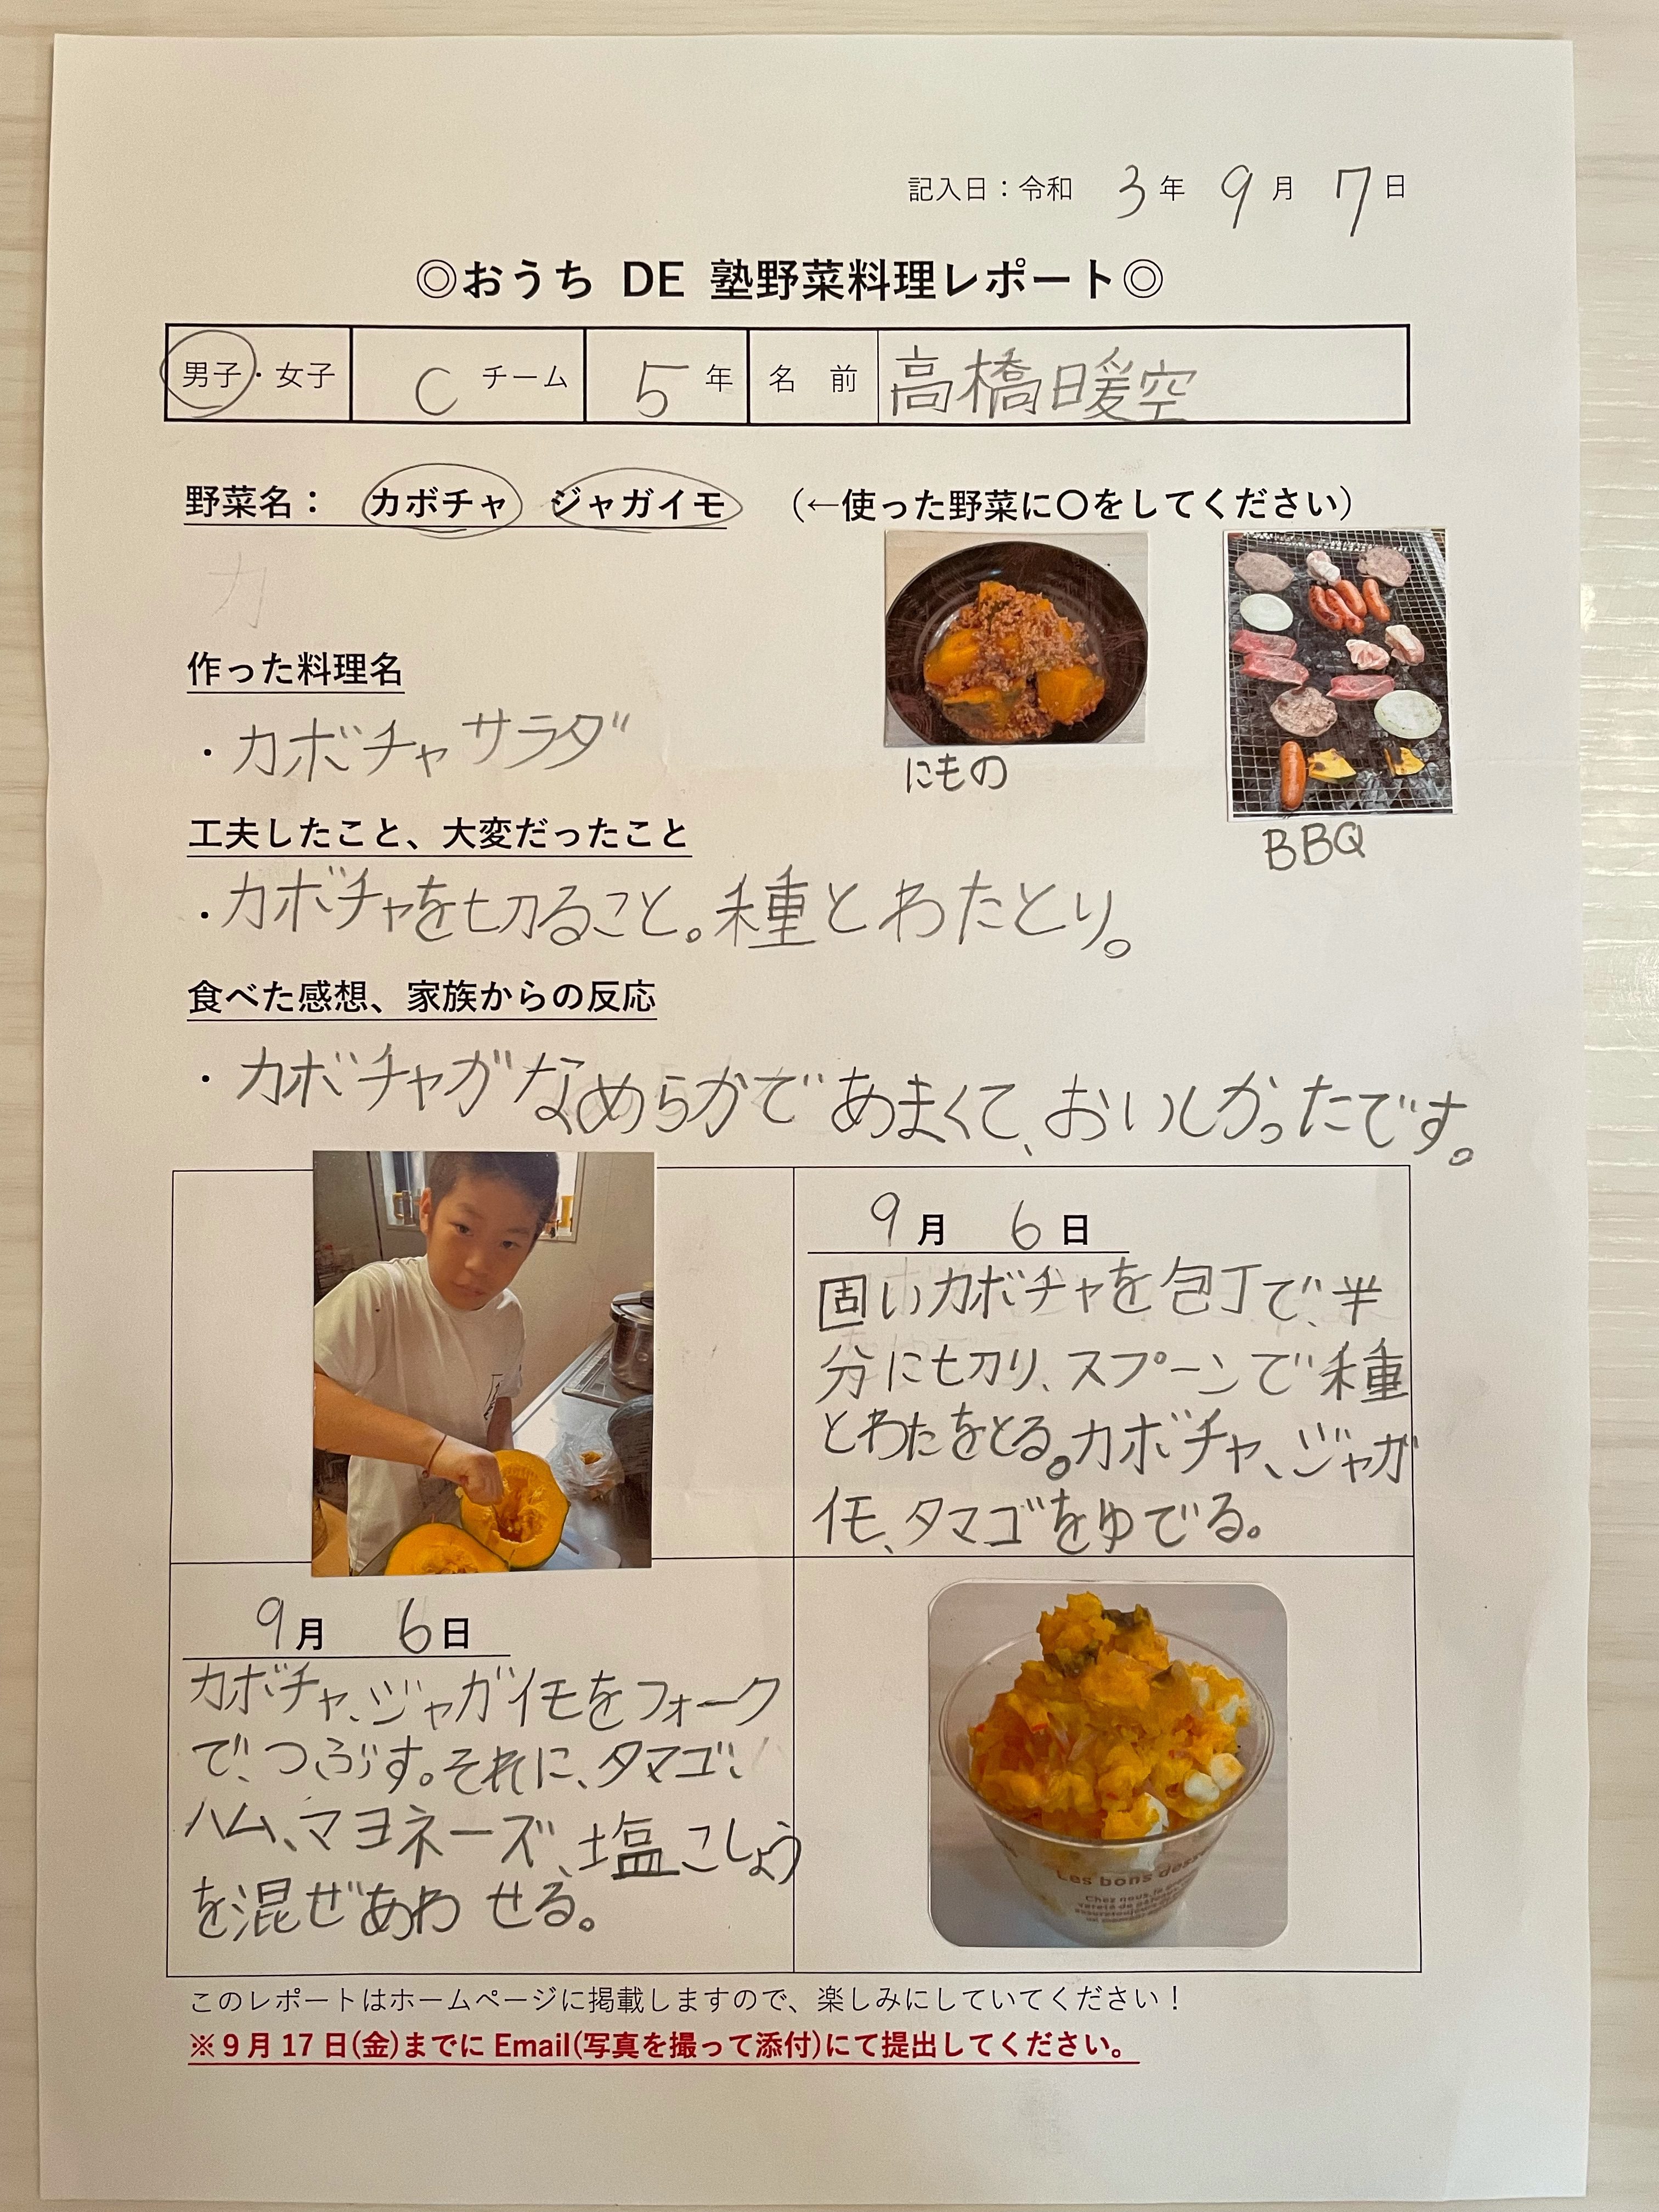 記入日：令和 3年 9月 7日
◎おうち DE 塾野菜料理レポート◎
男子・女子 C チーム 5年 名 前 高橋暖空
野菜名： カボチャ ジャガイモ （←使った野菜に〇をしてください）
カ
作った料理名
・カボチャサラダ
にもの
BBQ
工夫したこと、大変だったこと
・カボチャを切ること。種とわたとり。
食べた感想、家族からの反応
・カボチャがなめらかであまくて、おいしかったです。
9月 6日
固いカボチャを包丁で、半
分に切り、スプーンで種
とわたをとる。カボチャ、ジャガ
イモ、タマゴをゆでる。
9月 6日
カボチャ、ジャガイモをフォーク
で、つぶす。それに、タマゴ、
ハム、マヨネーズ、塩こしょう
を混ぜあわせる。
Les bons desse
Chez nous
このレポートはホームページに掲載しますので、楽しみにしていてください！
※9月17日(金)までにEmail(写真を撮って添付)にて提出してください。